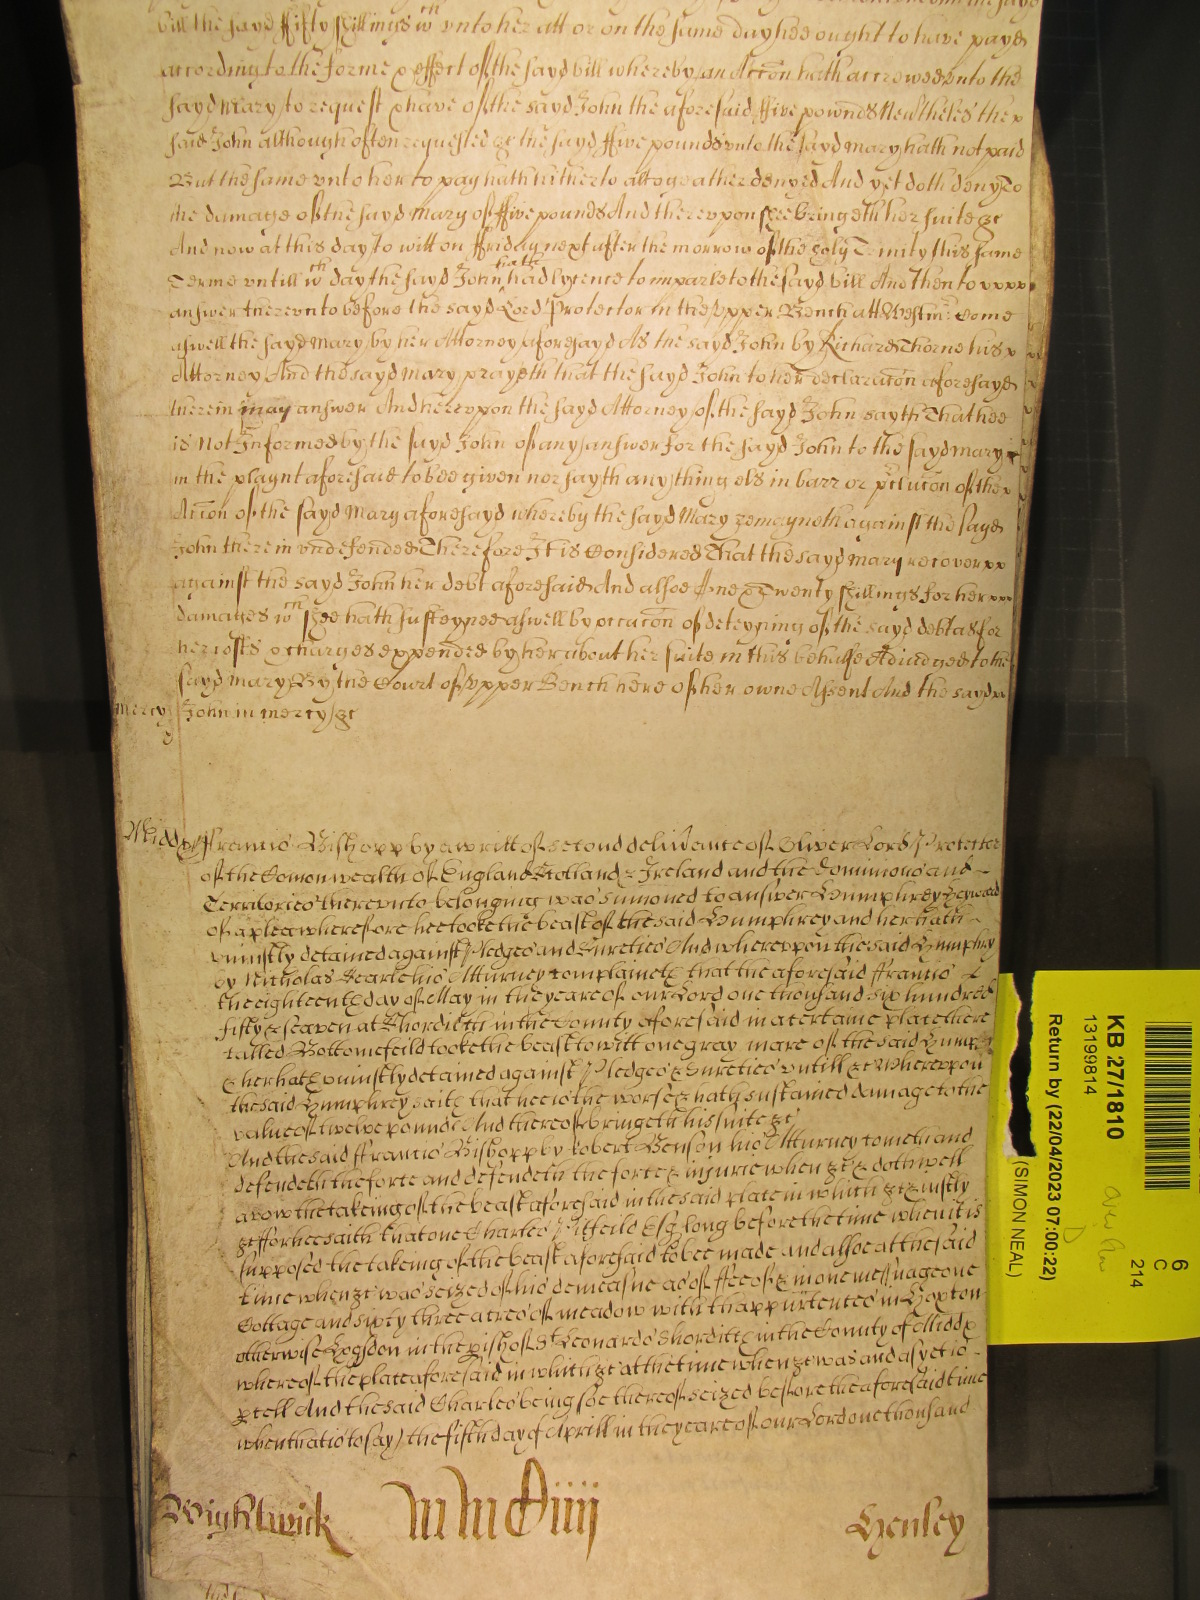 bill the sayd ffifty shillings wth vnto her att or on the same day hee ought to have payd
according to the forme & effect of the sayd bill whereby an Accon hath accrewed vnto the
sayd Mary to request & have of the sayd John the aforesaid ffive pownds Nevtheles the
said John although often requested &c the sayd ffive pounds vnto the sayd mary hath not paid
But the same vnto her to pay hath hitherto altogeather denyed And yet doth deny To
the damage of the sayd mary of ffive pounds And therevpon shee bringeth her suite &c
And now at this day To witt on ffriday next after the morrow of the holy Trinity this same
Terme vntill wch day the sayd John hath had lycence to imparle to the sayd bill And then to
answer therevnto before the sayd Lord Protector in the vpper Bench att Westmr: Come
aswell the sayd Mary by her Attorney aforesayd As the sayd John by Richard Thorne his
Attorney And the sayd mary prayeth that the sayd John to her declaracon aforesayd
therein may answer And herevpon the sayd Attorney of the sayd John sayth That hee
is not Informed by the sayd John of any answer for the sayd John to the sayd mary
in the playnt aforesaid to bee given nor sayth any thing els in barr or pclucon of the
Accon of the sayd Mary aforesayd whereby the sayd Mary remayneth against the sayd
John therein vndefended Therefore It is Considered That the sayd mary recover
against the sayd John her debt aforesaid And alsoe One & Twenty shillings for her
damages wch shee hath susteyned aswell by occacon of deteyning of the sayd debt as for
her costs & charges expended by her about her suite in this behalfe Adiudged to the
sayd mary By the Court of vpper Bench here of her owne Assent And the sayd
mercy John in mercy &c
Midd ss ffrancis Bishopp by a writt of second delivance of Oliver Lord Protector
of the Comonwealth of England Scotland & Ireland and the Dominions and
Territories therevnto belonging was sumoned to answer Humphrey
of a plea wherefore hee tooke the beast of the said Humphrey and her hath
vniustly detained against Pledges and Sureties And wherevpon the said Humphry
by Nicholas Searle his Atturney complaineth that the aforesaid ffrancis
the eighteenth day of May in the yeare of our Lord one thousand six hundred
fifty & seaven at Shordich in the County aforesaid in a certaine place there
called Bottomefeild tooke the beast to witt one gray mare of the said Humphr
& her hath vniustly detained against Pledges & Sureties vntill &c Wherevpon
the said Humphrey saith that hee is the worse & hath sustained damage to the
value of twelve pounds And thereof bringeth his suite &c
And the said ffrancis Bishopp by Robert Benson his Atturney cometh and
defendeth the force and iniurie when &c & doth well
avow the takeing of the beast aforesaid in the said place in which &c & iustly
&c ffor hee saith that one Charles Pitfeild Esq long before the time when it is
supposed the takeing of the beast aforesaid to bee made and alsoe at the said
time when &c was seized of his demeasne as of ffee of & in one messuage one
Cottage and sixty three acres of meadow with thappurtences in Hoxton
otherwise Hogsdon in the pish of St Leonards Shorditch in the County of Midd
whereof the place aforesaid in which &c at the time when &c was and as yet is
pcell And the said Charles being soe thereof seized before the aforesaid time
when that is to say the fifth day of Aprill in the yeare of our Lord one thousand
Wightwick Henley
KB 27/1810
13199814
Return by (22/04/2023 07:00:22)
(SIMON NEAL)
6
C
214
D